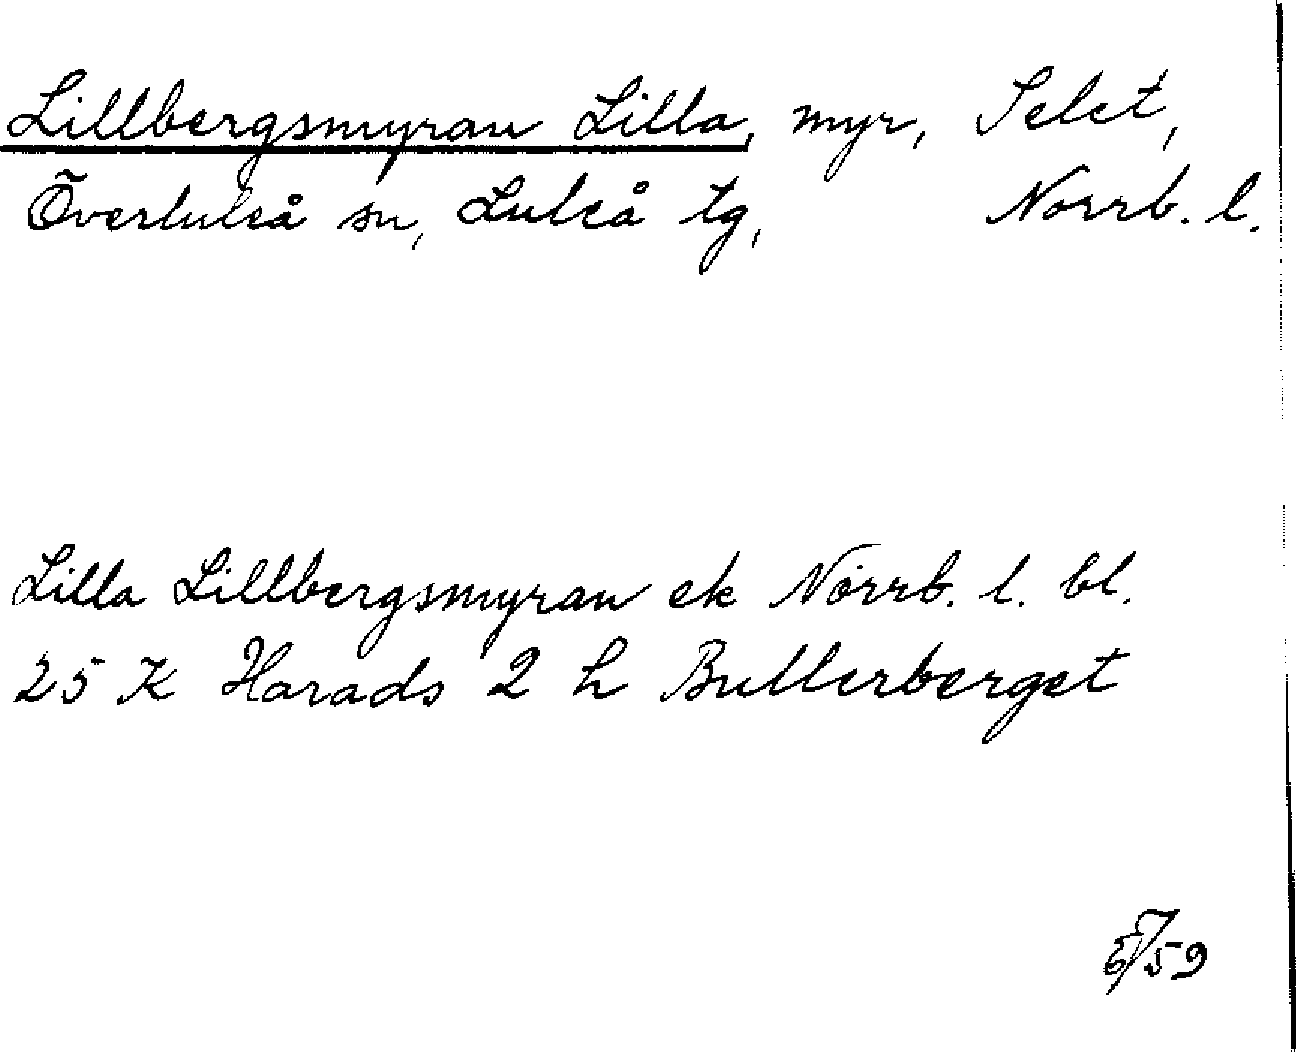 Lillbergsmyran Lilla, myr, Selet,
Överluleå sn, Luleå tg, Norrb. l.
Lilla Lillbergsmyran ek Norrb. l. bl.
25 K Harads 2 h Bullerberget
59